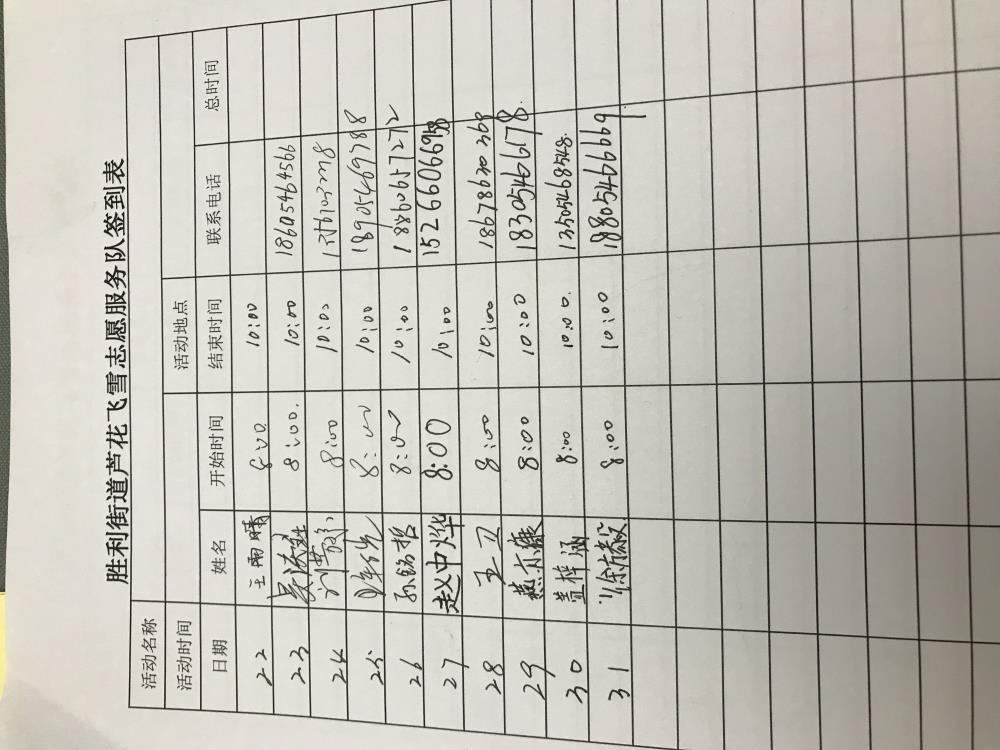 胜利街道芦花飞雪志愿服务队签到表
活动名称
活动时间 活动地点
日期 姓名 开始时间 结束时间 联系电话 总时间
22 王雨晴 8:00 10:00
23 8:00. 10:00 18605464566
24 8:00 10:00
25 8:00 10:00 18905469788
26 孙铭哲 8:00 10:00 18860657272
27 赵中烨 8:00 10:00
28 王卫 8:00 10:00 18678620368
29 8:00 10:00 18305466178.
30 萱梓涵 8:00 10:00. 13505468548.
31 8:00 10:00 18805466669